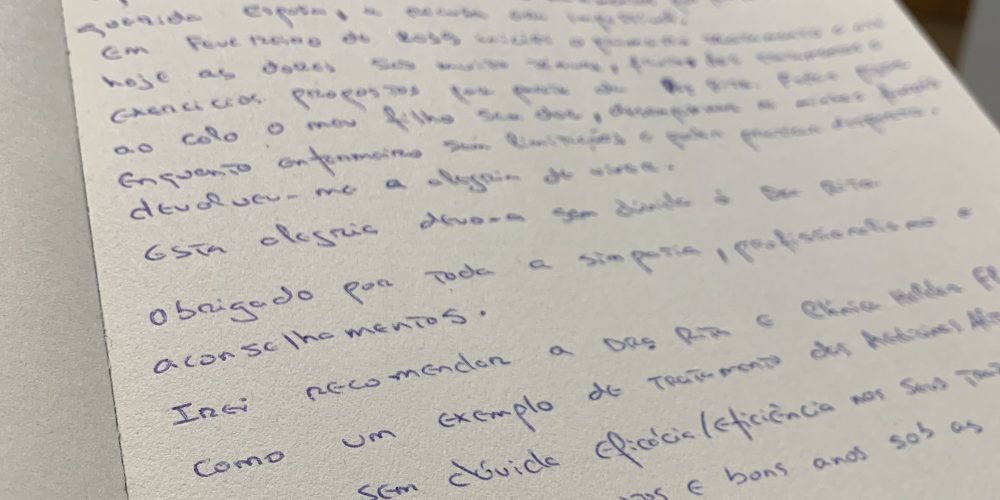 querida esposa, a
Em Fevereiro de 2023 iniciei o primeiro tratamento e até
hoje as dores são muito
exercícios propostos por parte da Dra Rita. Poder pegar
ao colo o meu filho sem dor, desempenhar as minhas funções
enquanto enfermeiro sem limitações e poder praticar desporto.
devolveu-me a alegria de viver.
Esta alegria devo-a sem dúvida à Dra Rita.
Obrigado por toda a simpatia, profissionalismo e
aconselhamentos.
Irei recomendar a DRª Rita e Clínica
como um exemplo de tratamento das Medicinas
sem dúvida eficácia/eficiência nos seus
e bons anos sob as